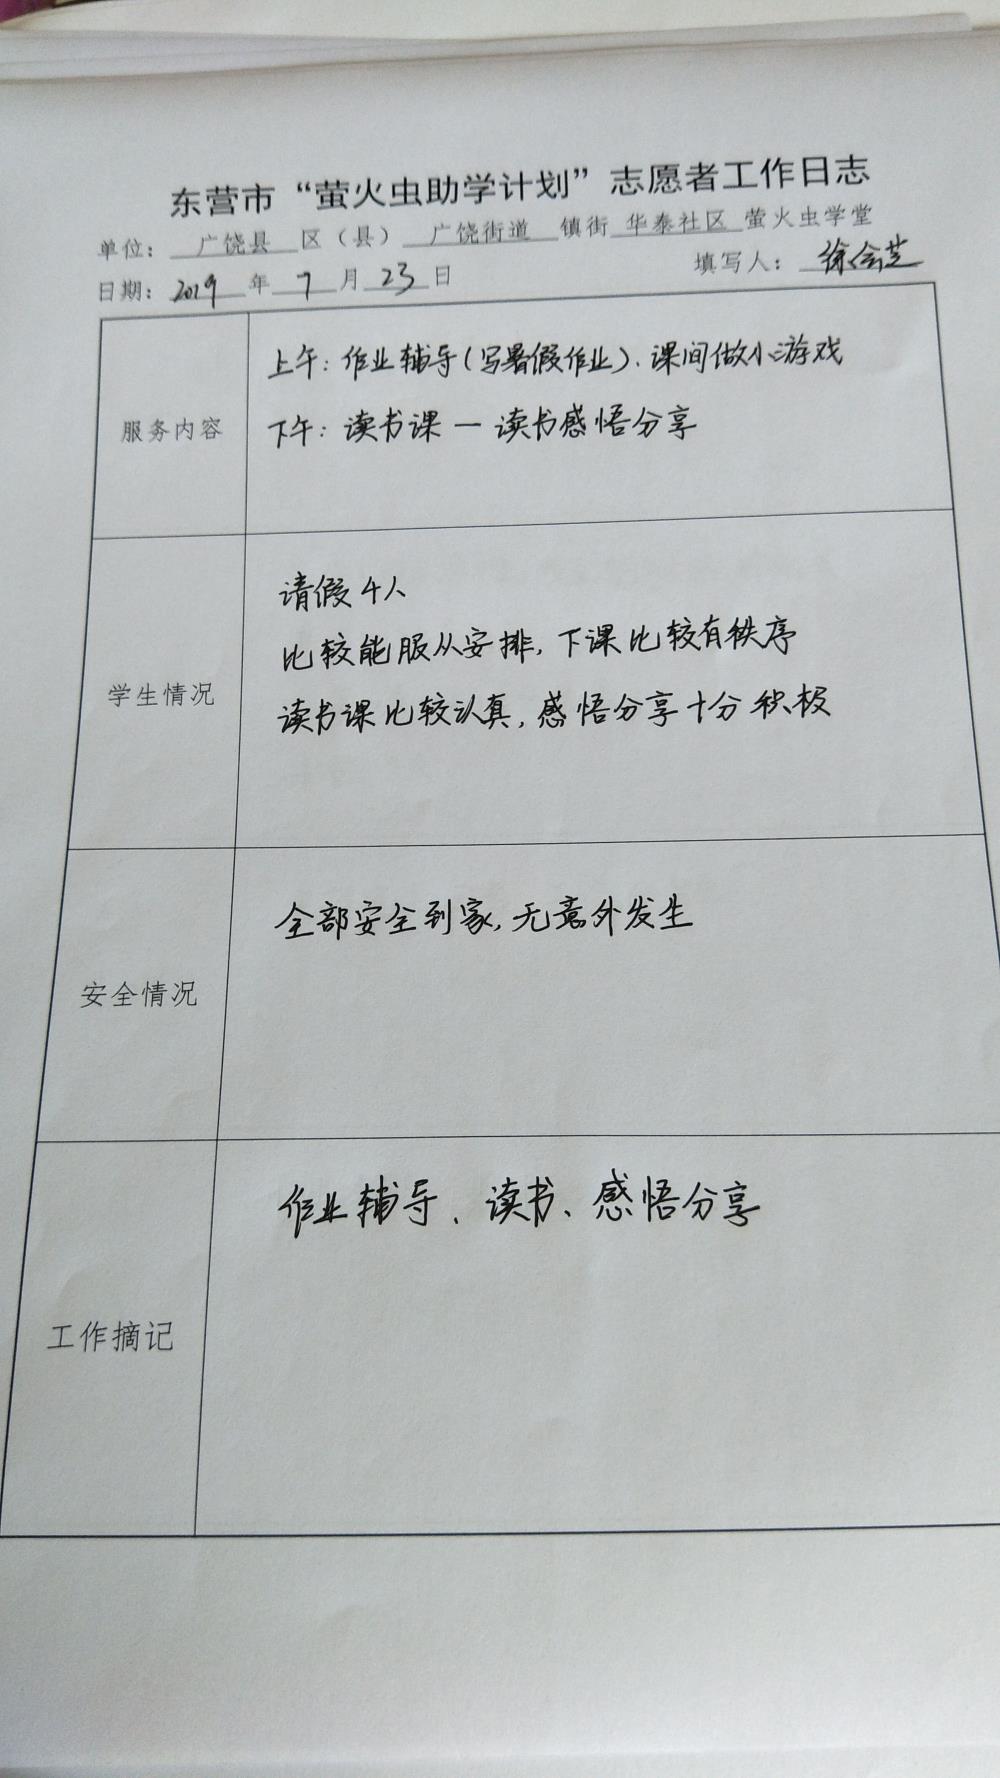 东营市“萤火虫助学计划”志愿者工作日志
单位： 广饶县 区（县） 广饶街道 镇街 华泰社区 萤火虫学堂
日期： 2019 年 7 月 23 日 填写人： 徐会芝
服务内容
上午：作业辅导（写暑假作业）、课间做小游戏
下午：读书课 — 读书感悟分享
学生情况
请假4人
比较能服从安排，下课比较有秩序
读书课比较认真，感悟分享十分积极
安全情况
全部安全到家，无意外发生
工作摘记
作业辅导、读书、感悟分享